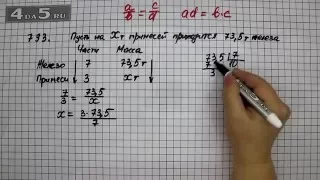 4DA5.RU
a/b = c/d ad = b·c
793. Пусть на x т примесей приходится 73,5 т железа
Части Масса
Железо 7 73,5 т
Примеси 3 x т
7/3 = 73,5/x
x = 3·73,5/7
73,5 | 7
7 | 10
3